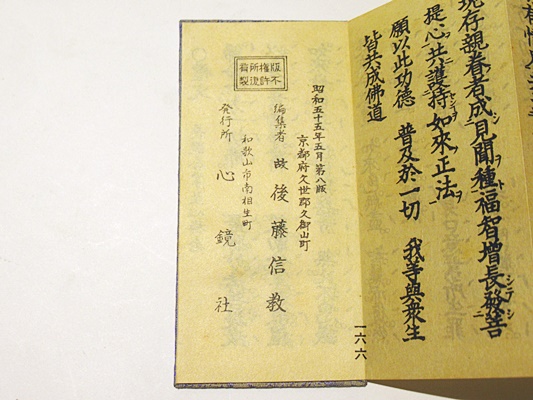 現存親眷者成見聞種福智增長發菩
提心共護持如來正法
願以此功德　普及於一切　我等與衆生
皆共成佛道
一六六
版權所有
不許複製
昭和五十五年五月第八版
京都府久世郡久御山町
編集者　故　後藤信教
和歌山市南相生町
発行所　心鏡社